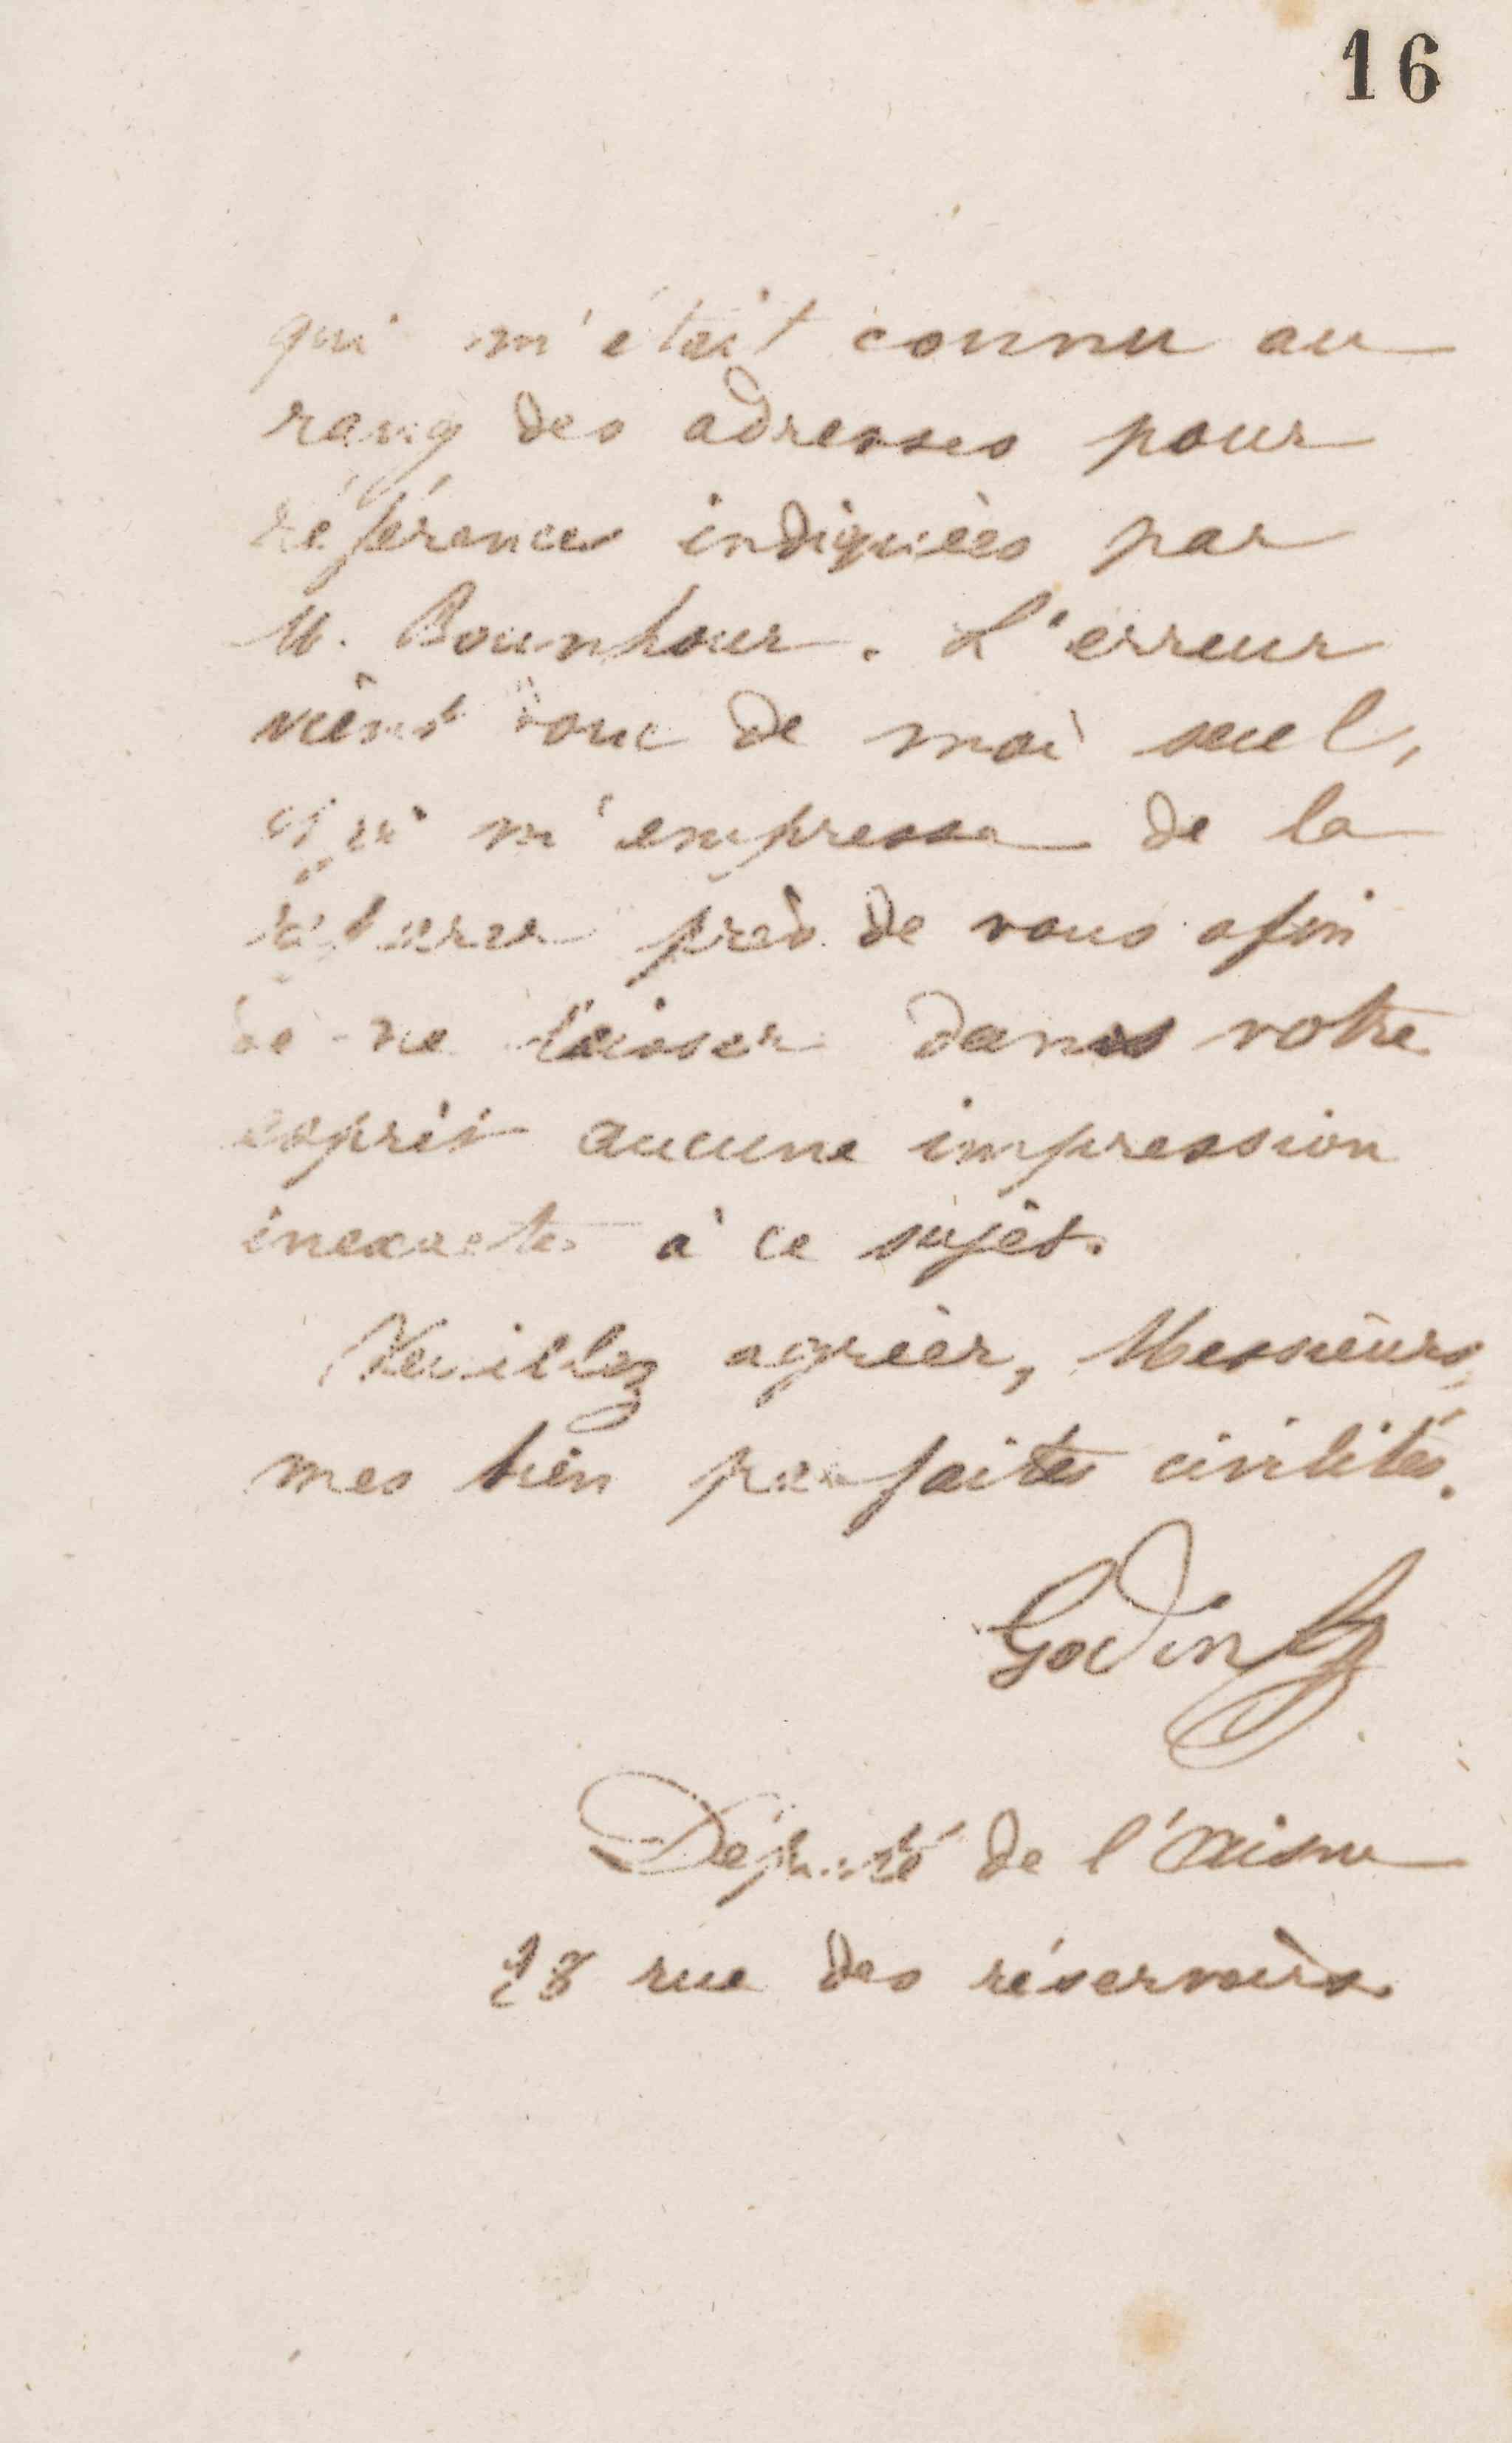 16
qui m'était connu au
rang des adresses pour
références indiquées par
M. Bounhour. L'erreur
vient donc de moi seul,
m'empresse de la
près de vous afin
de ne laisser dans votre
esprit aucune impression
inexacte à ce sujet.
Veuillez agréer, Messieurs,
mes bien parfaites civilités.
Godin
Député de l'Aisne
28 rue des réservoirs